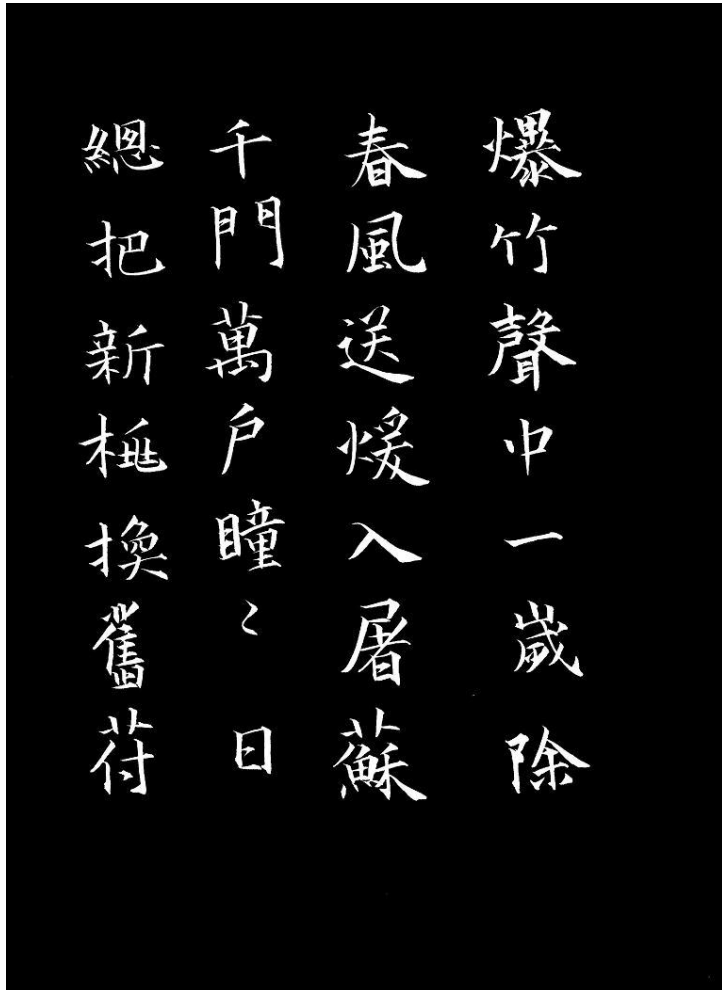 爆竹聲中一歲除
春風送煖入屠蘇
千門萬户瞳〻日
總把新桃換舊苻